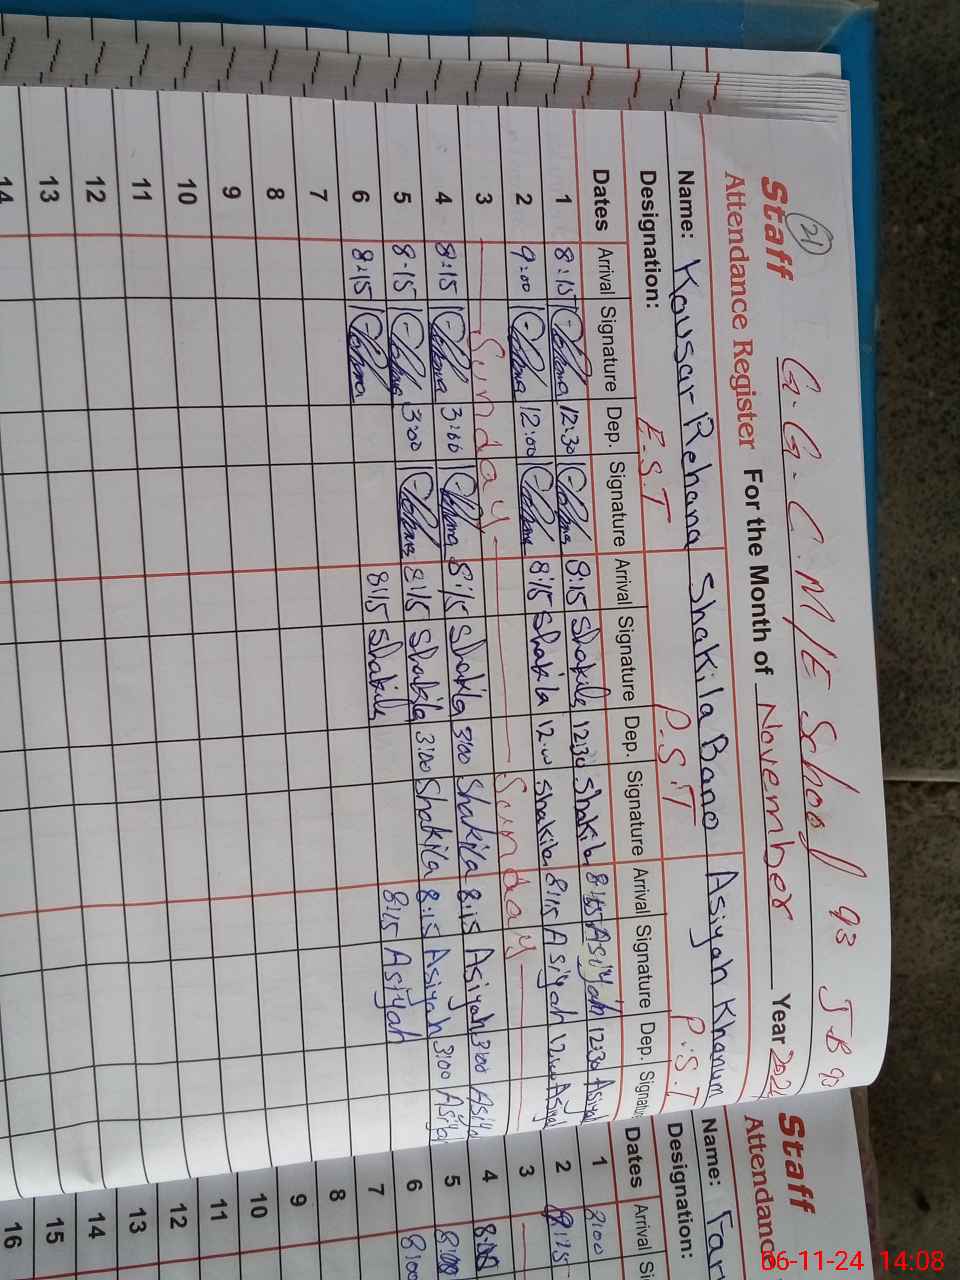 21
G.G.C.M/E School 93 J-B
Staff
Attendance Register For the Month of November Year 2024
Name: Kousar Rehana Shakila Bano Asiyah Khanum
Designation: E.S.T P.S.T P.S.T
Dates Arrival Signature Dep. Signature Arrival Signature Dep. Signature Arrival Signature Dep. Signatu
1 8:15 12:30 8:15 Shakila 12:30 Shakila 8:15 Asiyah 12:30 Asiyah
2 9:00 12:00 8:15 Shakila 12:00 Shakila 8:15 Asiyah 12:00 Asiyah
3 Sunday Sunday
4 8:15 3:00 8:15 Shakila 3:00 Shakila 8:15 Asiyah 3:00 Asiya
5 8:15 3:00 8:15 Shakila 3:00 Shakila 8:15 Asiyah 3:00 Asiya
6 8:15 8:15 Shakila 8:15 Asiyah
7
8
9
10
11
12
13
14
Staff
Attendanc
Name:
Designation:
Dates Arrival Si
1
2
3
4
5
6 8:00
7
8
9
10
11
12
13
14
15
16
06-11-24 14:08